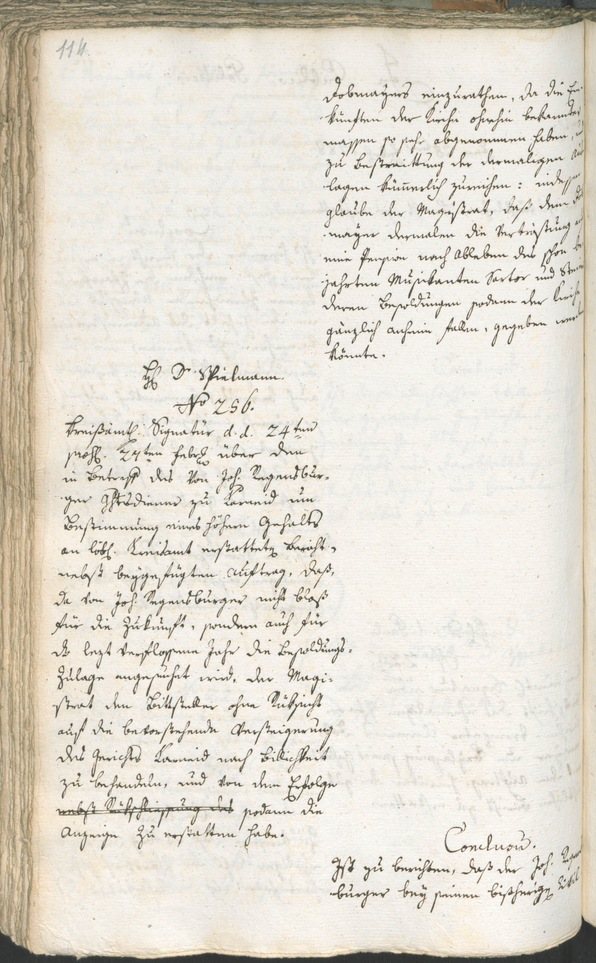 114.
Dobmayers einzurathen, da die Ein
künften der Kirche ohnehin bekannter
massen so sehr abgenommen haben,
zu Bestreittung der dermaligen Aus
lagen kümerlich zureichen: indessen
glaube der Magistrat, daß dem Dob
mayer dermalen die Vertröstung auf
eine Pension nach Ableben des schon be
jahrten Musikanten Sartor und
deren Besoldungen sodann der Kirche
gänzlich anheim fallen, gegeben werden
könnte.
H. D. Spielmann.
No 256.
Kreißamtl. Signatur d. d. 24ten
prs. 27ten Febr. über den
in Betreff des von Joh. Regensbur-
ger Gerichtsdiener zu Karneid um
Bestimmung eines höhern Gehalts
an löbl. Kreisamt erstatteten Bericht,
nebst beygefügten Auftrag, daß,
da von Joh. Regensburger nicht bloß
für die Zukunft, sondern auch für
das lezt verflossene Jahr die Besoldungs-
zulage angesucht wird, der Magi-
strat den Bittsteller ohne Rüksicht
auf die bevorstehende Versteigerung
des Gerichts Karneid nach Billichkeit
zu behandeln, und von dem Erfolge
nebst Rükschliessung des sodann die
Anzeige zu erstatten habe.
Conclusum.
Ist zu berichten, daß der Joh. Regens
burger bey seinen bißherigen